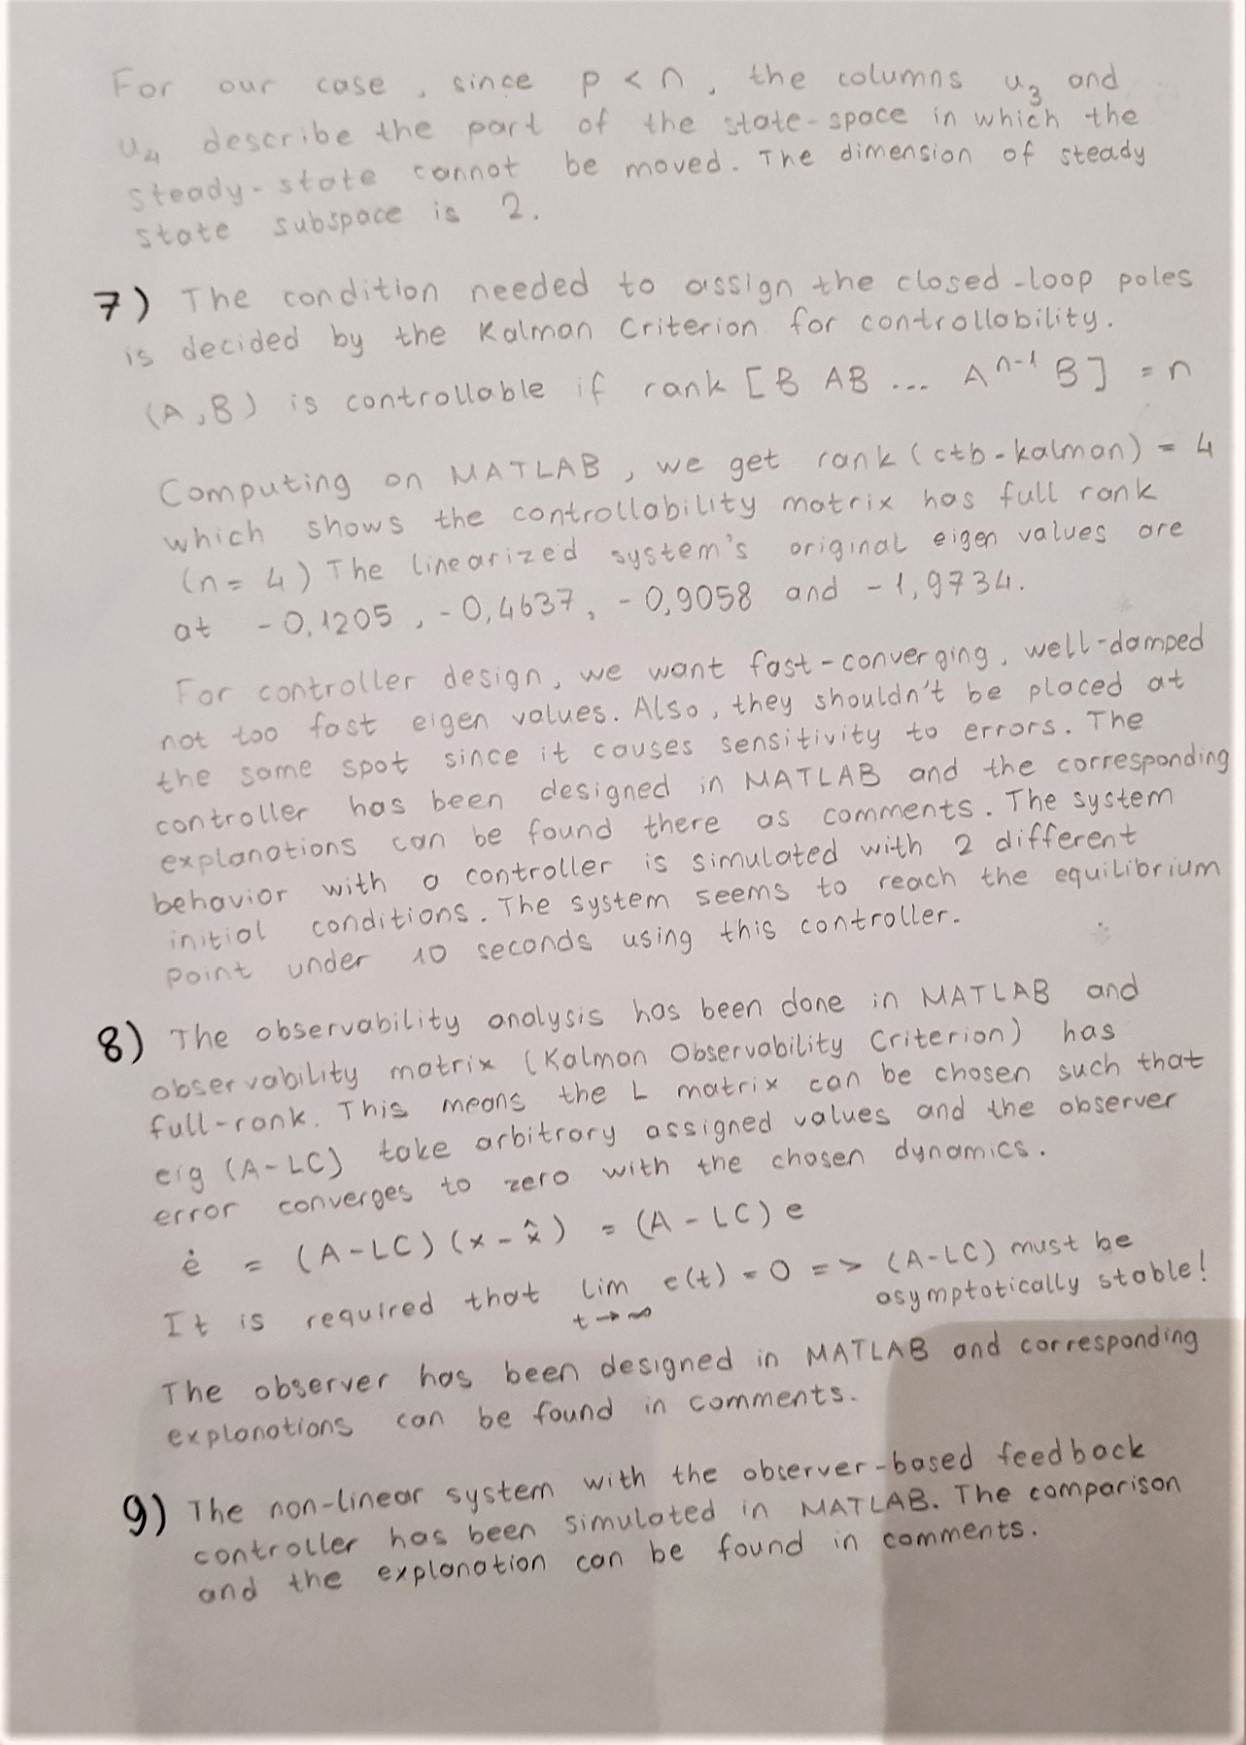 For our case, since p < n, the columns u₃ and
u₄ describe the part of the state-space in which the
steady-state cannot be moved. The dimension of steady
state subspace is 2.
7) The condition needed to assign the closed-loop poles
is decided by the Kalman Criterion for controllability.
(A,B) is controllable if rank [B AB ... Aⁿ⁻¹ B] = n
Computing on MATLAB, we get rank (ctb-kalman) = 4
which shows the controllability matrix has full rank
(n=4) The linearized system's original eigen values are
at -0,1205, -0,4637, -0,9058 and -1,9734.
For controller design, we want fast-converging, well-damped
not too fast eigen values. Also, they shouldn't be placed at
the same spot since it causes sensitivity to errors. The
controller has been designed in MATLAB and the corresponding
explanations can be found there as comments. The system
behavior with a controller is simulated with 2 different
initial conditions. The system seems to reach the equilibrium
point under 10 seconds using this controller.
8) The observability analysis has been done in MATLAB and
observability matrix (Kalman Observability Criterion) has
full-rank. This means the L matrix can be chosen such that
eig (A-LC) take arbitrary assigned values and the observer
error converges to zero with the chosen dynamics.
ė = (A-LC)(x-x̂) = (A-LC)e
It is required that lim e(t) = 0 => (A-LC) must be
t→∞ asymptotically stable!
The observer has been designed in MATLAB and corresponding
explanations can be found in comments.
9) The non-linear system with the observer-based feedback
controller has been simulated in MATLAB. The comparison
and the explanation can be found in comments.